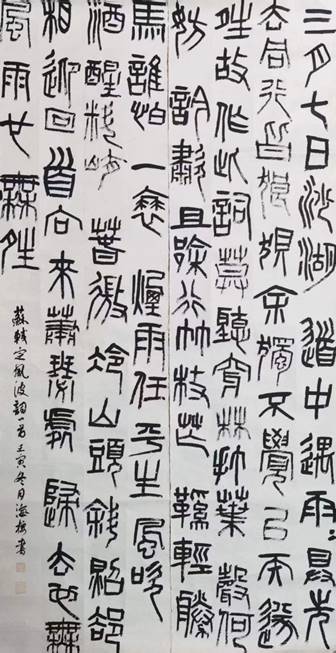 三月七日沙湖道中遇雨=具先
去同行皆狼狽余獨不覺已而遂
晴故作此詞莫聽穿林打葉聲何
妨吟嘯且徐行竹杖芒鞵輕勝
馬誰怕一蓑煙雨任平生風吹
酒醒料峭春微冷山頭斜照卻
相迎回首向來蕭瑟處歸去也無
風雨也無晴
蘇軾定風波詞一首壬寅冬月海書